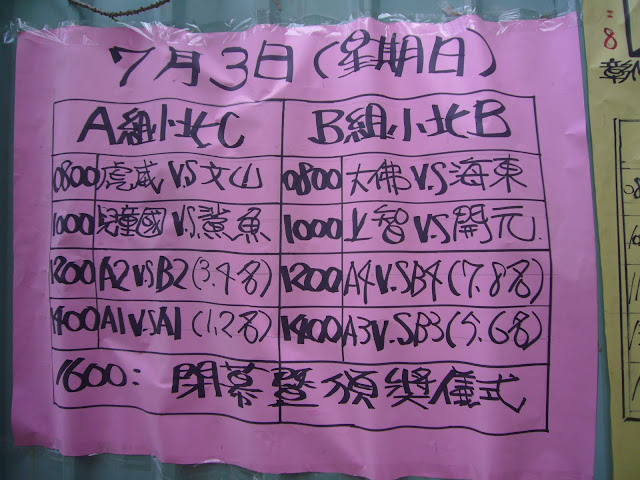 7月3日(星期日)
A組小北C B組小北B
0800 虎威 V.S 文山 0800 大佛 V.S 海東
1000 兒童國 V.S 鯊魚 1000 上智 V.S 開元
1200 A2 V.S B2 (3.4名) 1200 A4 V.S B4 (7.8名)
1400 A1 V.S A1 (1.2名) 1400 A3 V.S B3 (5.6名)
1600: 閉幕暨頒獎儀式
:8
彰